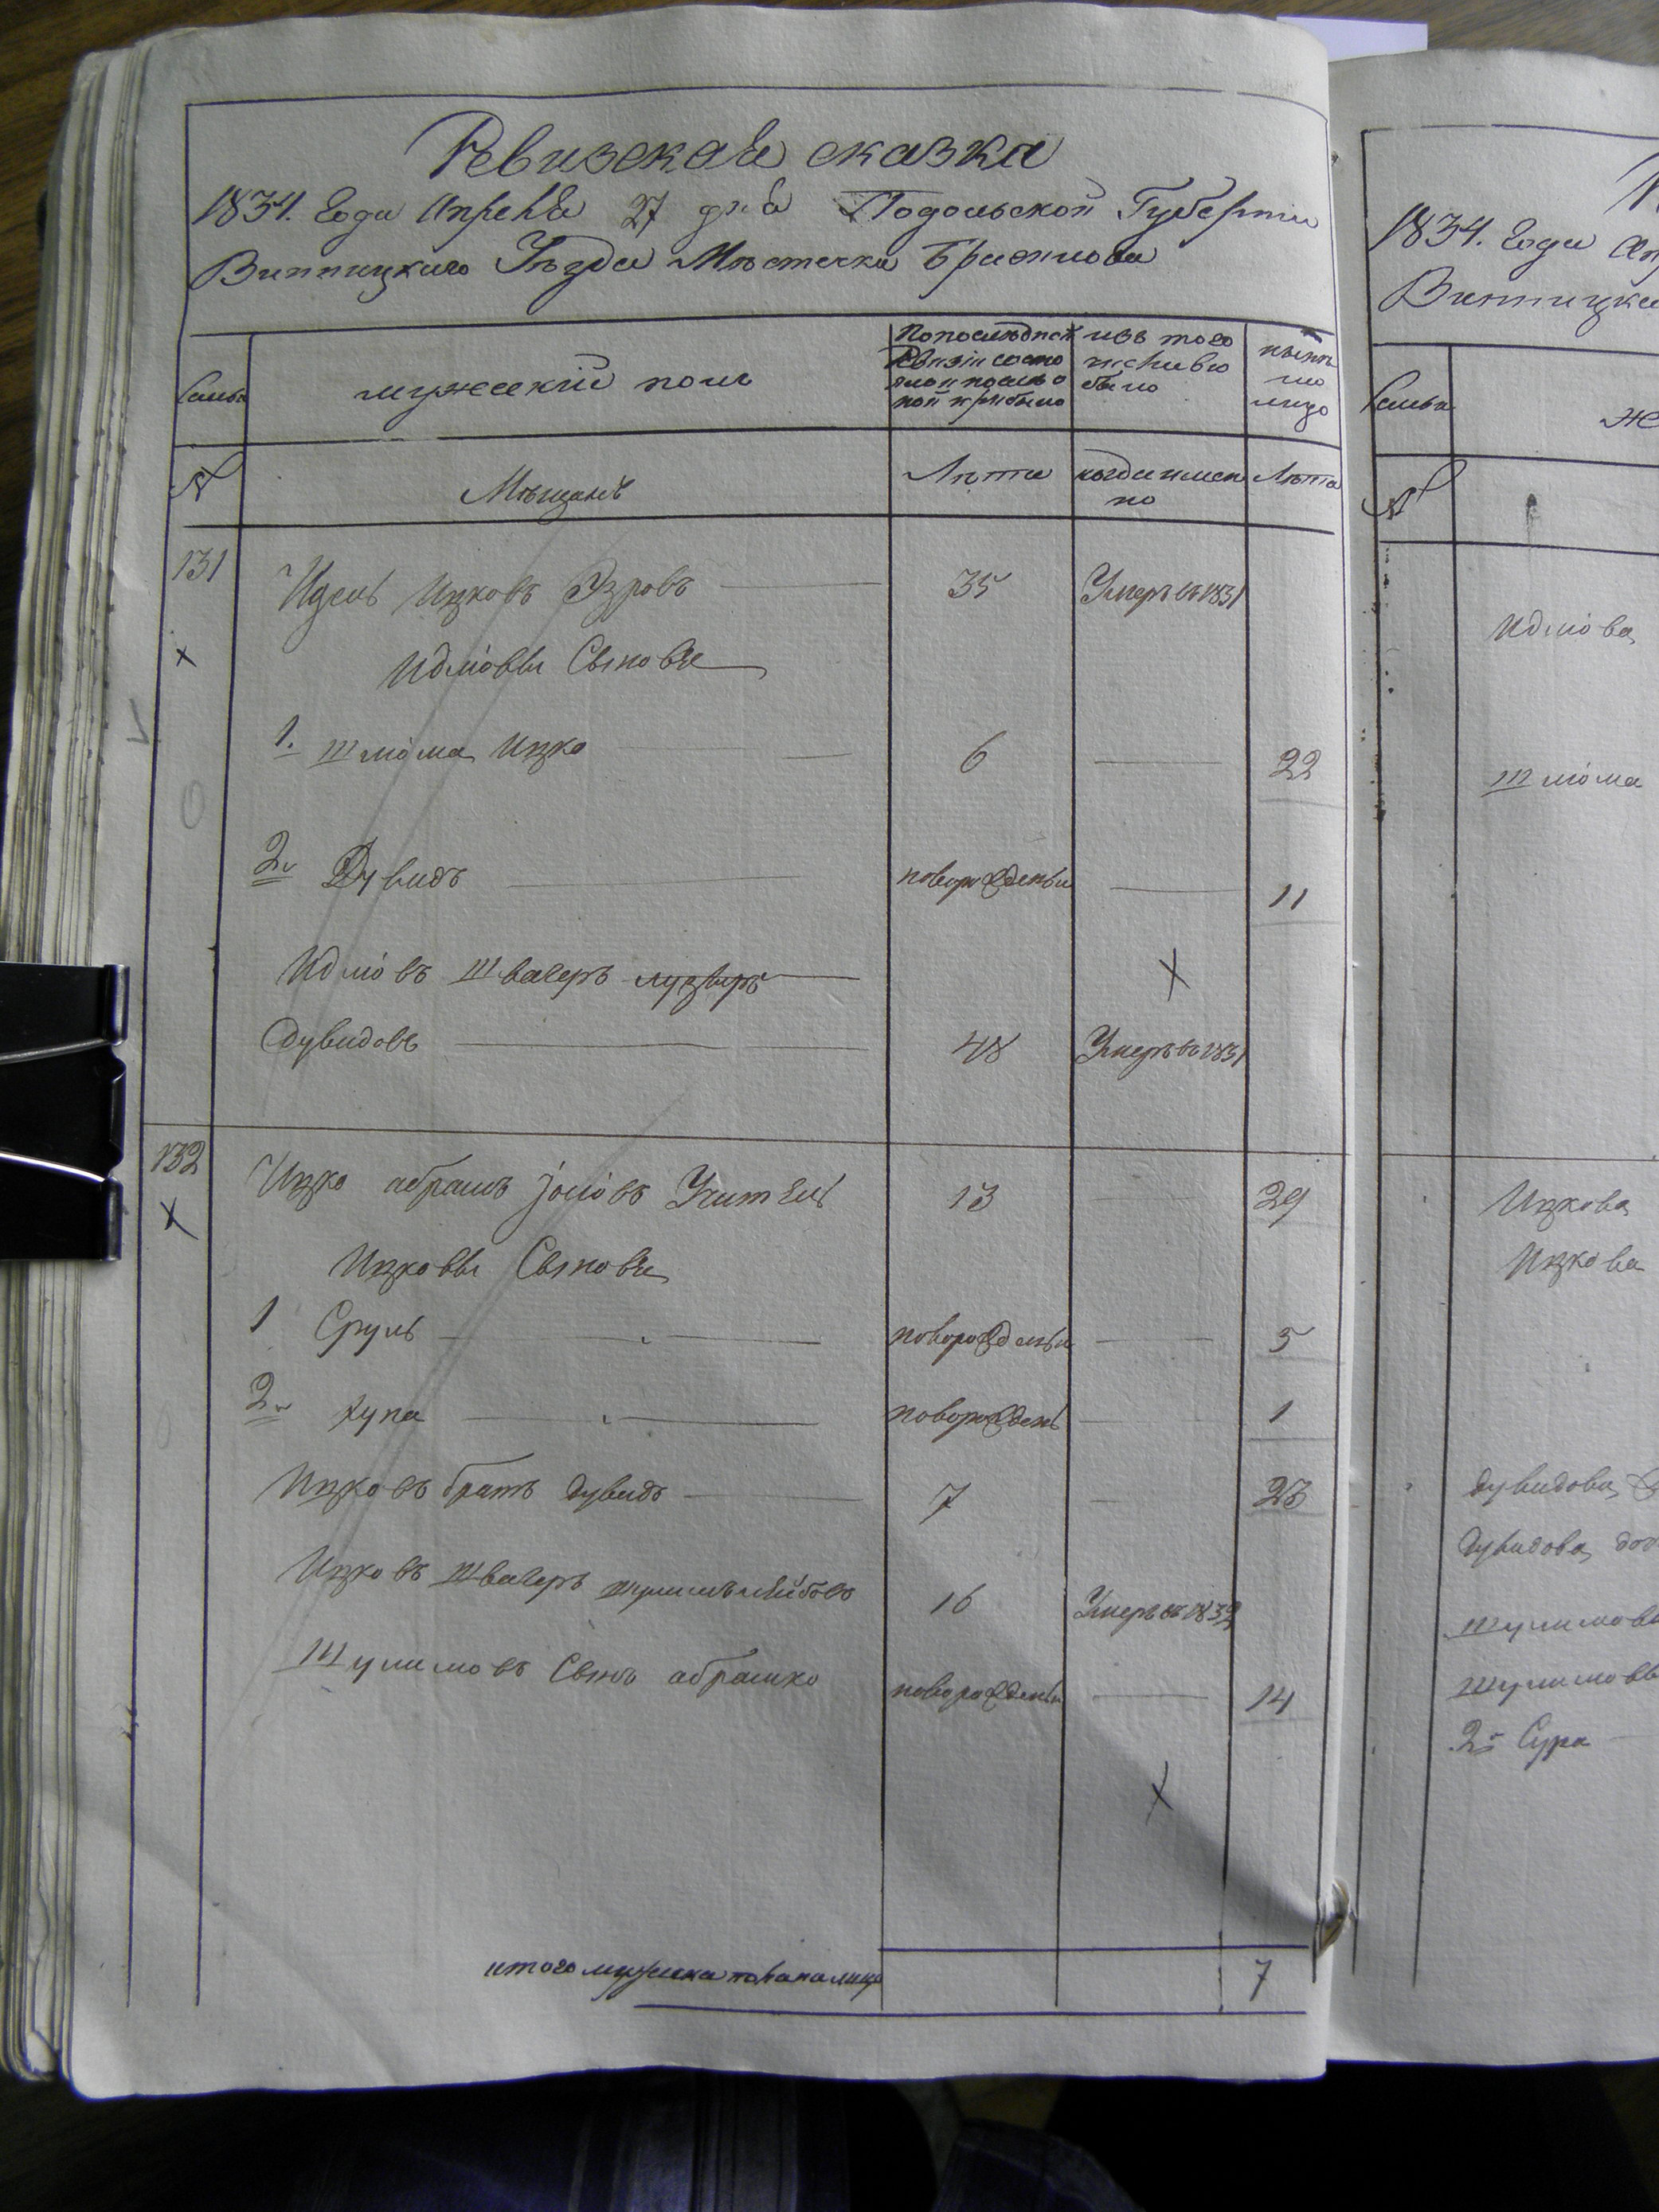 Ревизская сказка
1834. Года Апреля 27 дня Подольской Губернии
Винницкаго Уезда Местечка Браилова
Семьи
мужеский полъ
По последней
Ревизіи состо
яло и после о
ной прибыло
изъ того
числа вы
было
ныне
на
лицо
№
Мещане
Лета
когда имен
но
Лета
131
Идель Ицковъ
35
Умеръ въ 1831
Идліовы Сыновья
1. Шліома Ицко
6
22
2. Дувидъ
новорожденъи
11
Идліовъ Швагеръ
Дувидовъ
48
Умеръ въ 1831
132
Ицко абрамъ Іоліовъ Учитель
13
29
Ицковы Сыновья
1 Сруль
новорожденъи
5
2. Хуна
новорожден
1
Ицковъ братъ Дувидъ
7
23
Ицковъ Швагеръ Шулимъ Лейбовъ
16
Умеръ въ 1832
Шулимовъ Сынъ абрамко
новорожденъи
14
итого мужеска пола на лицо
7
1834. Года
Семьи
№
Идліова
Шліома
Ицкова
Ицкова
Дувидова
Дувидова
2я Сура